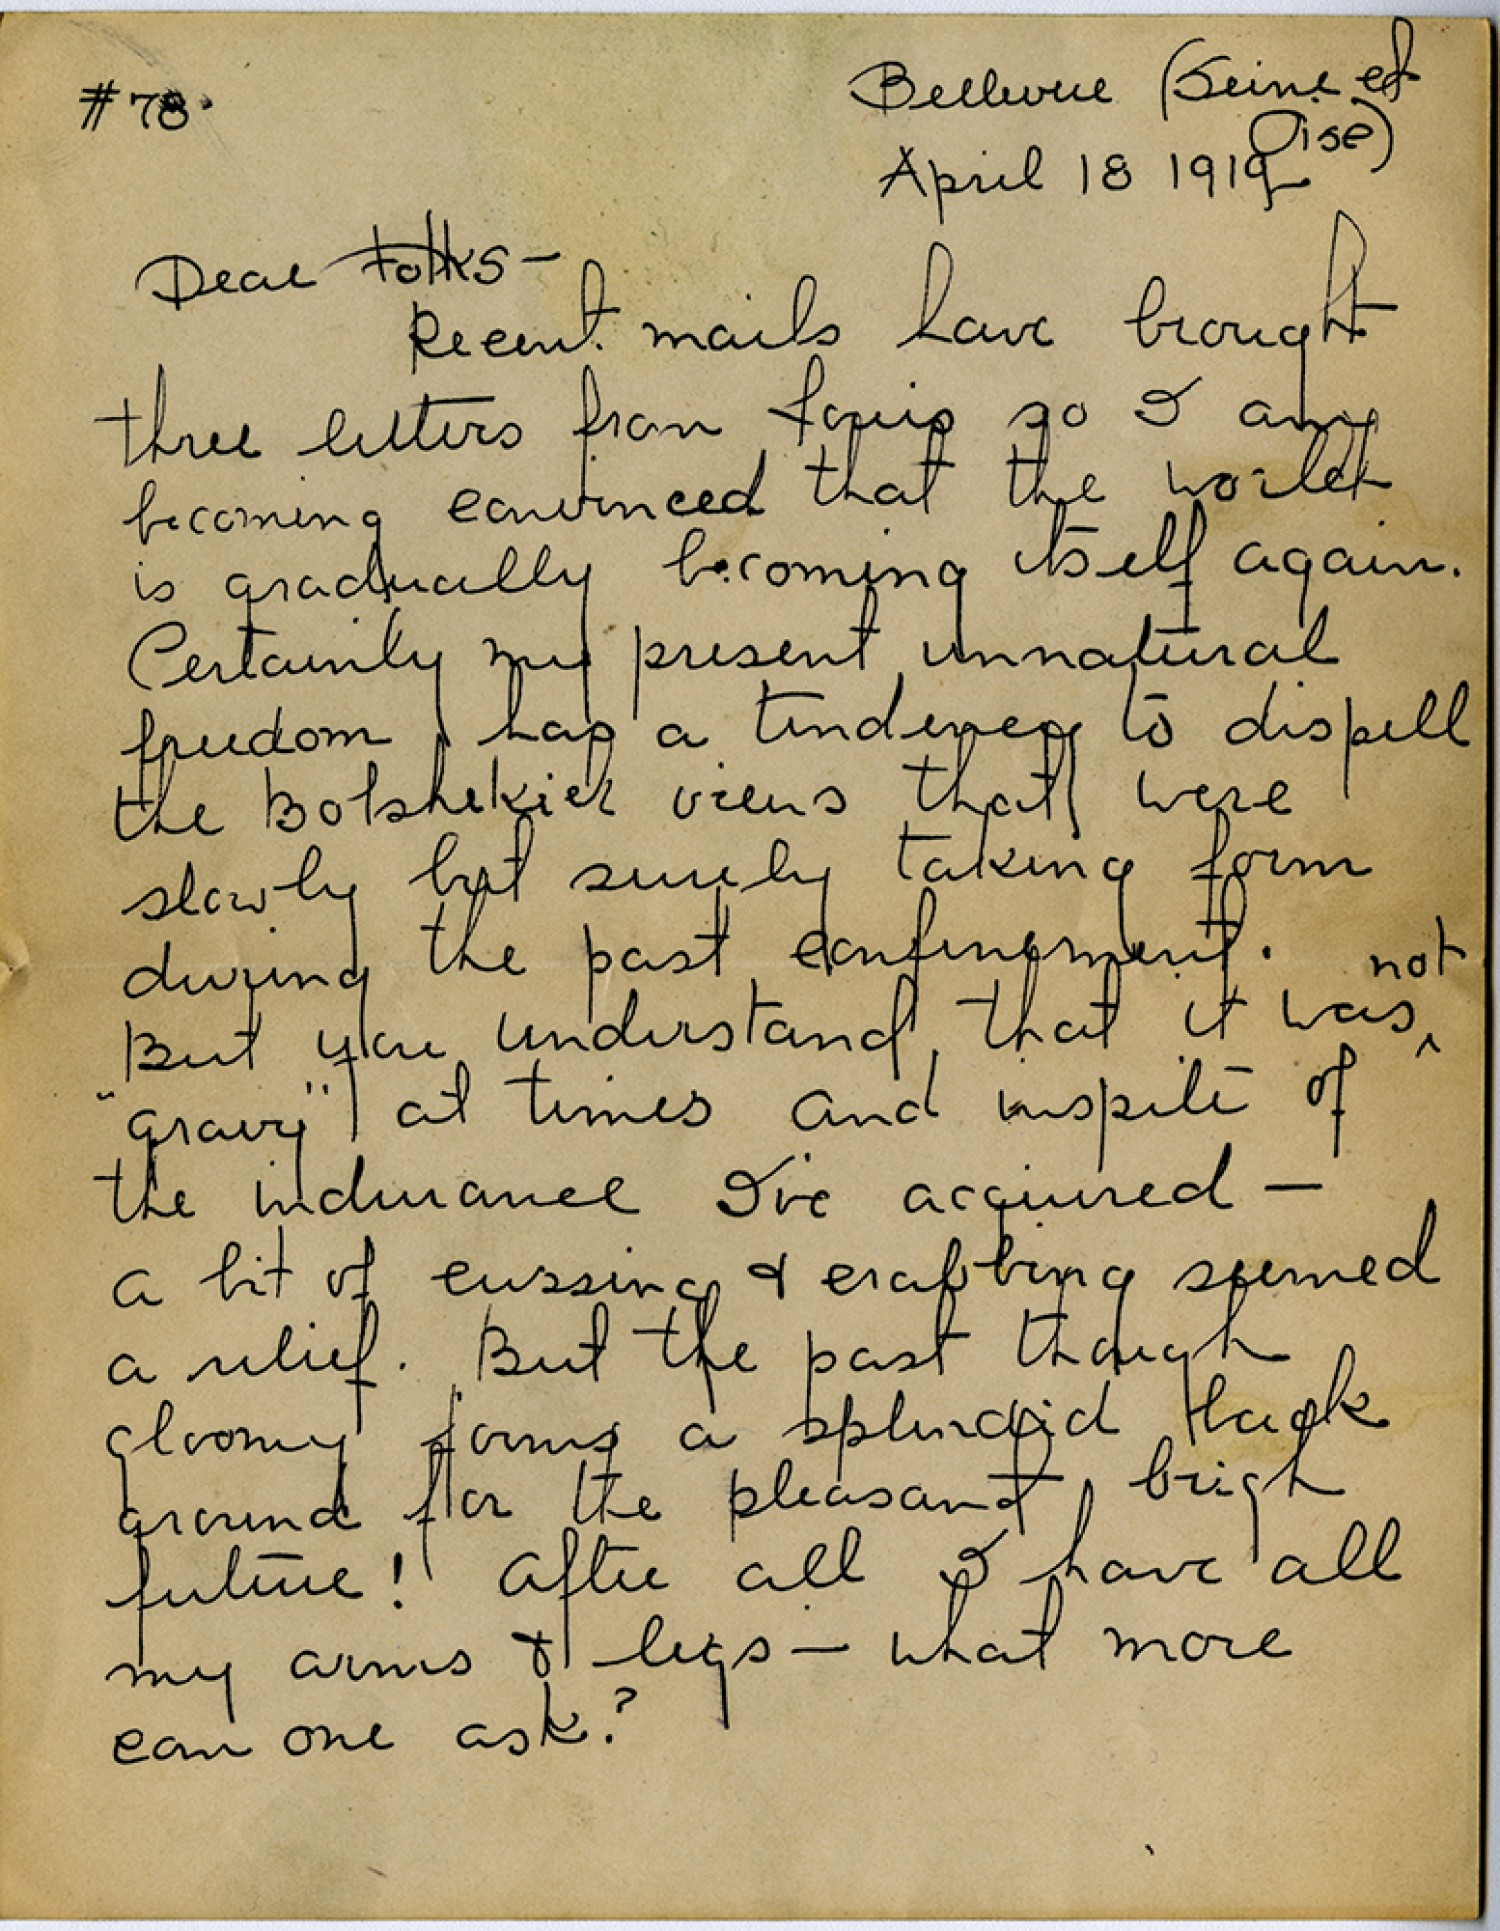 #78.
Bellevue (Seine et
Oise)
April 18 1919
Dear Folks -
Recent mails have brought
three letters from Louis so I am
becoming convinced that the world
is gradually becoming itself again.
Certainly my present unnatural
freedom has a tendency to dispell
the Bolshekick views that were
slowly but surely taking form
during the past confinement.
But you understand that it was ^ not
"gravy" at times and inspite of
the indurance I've acquired —
a bit of cussing & crabbing seemed
a relief. But the past though
gloomy forms a splendid back
ground for the pleasant brigh
future! After all I have all
my arms & legs — what more
can one ask?